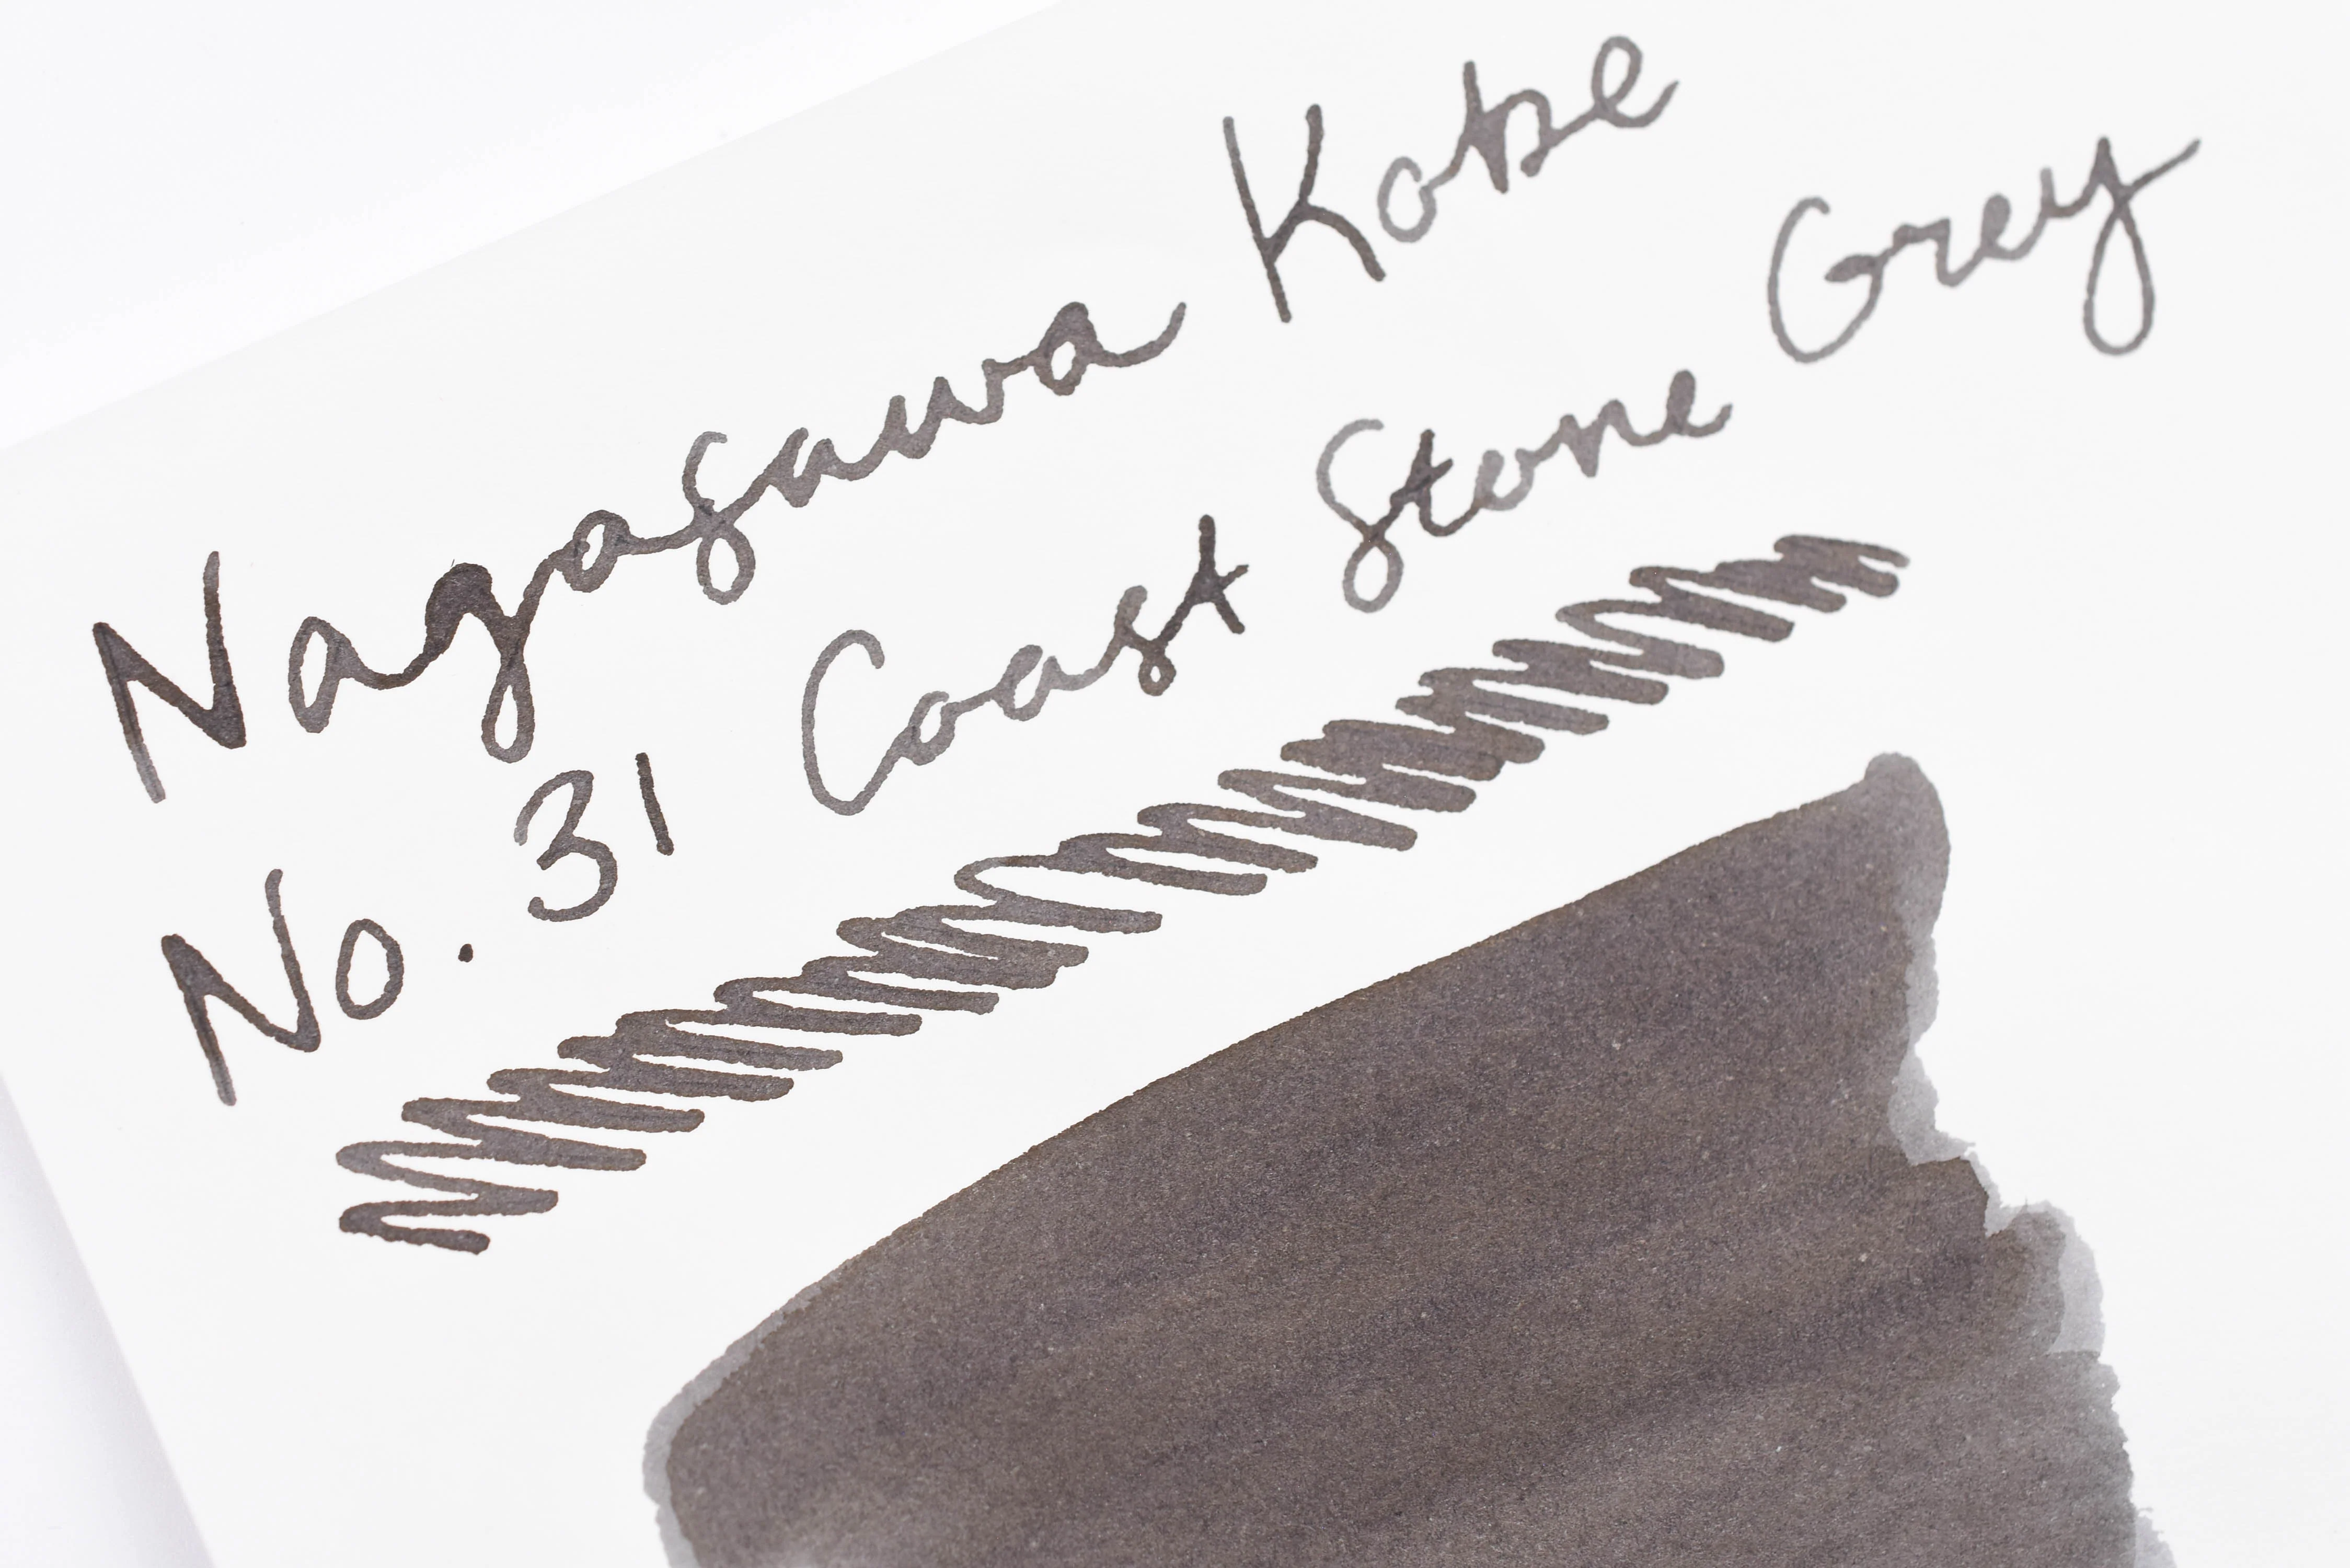 Nagasawa Kobe
No. 31 Coast Stone Grey